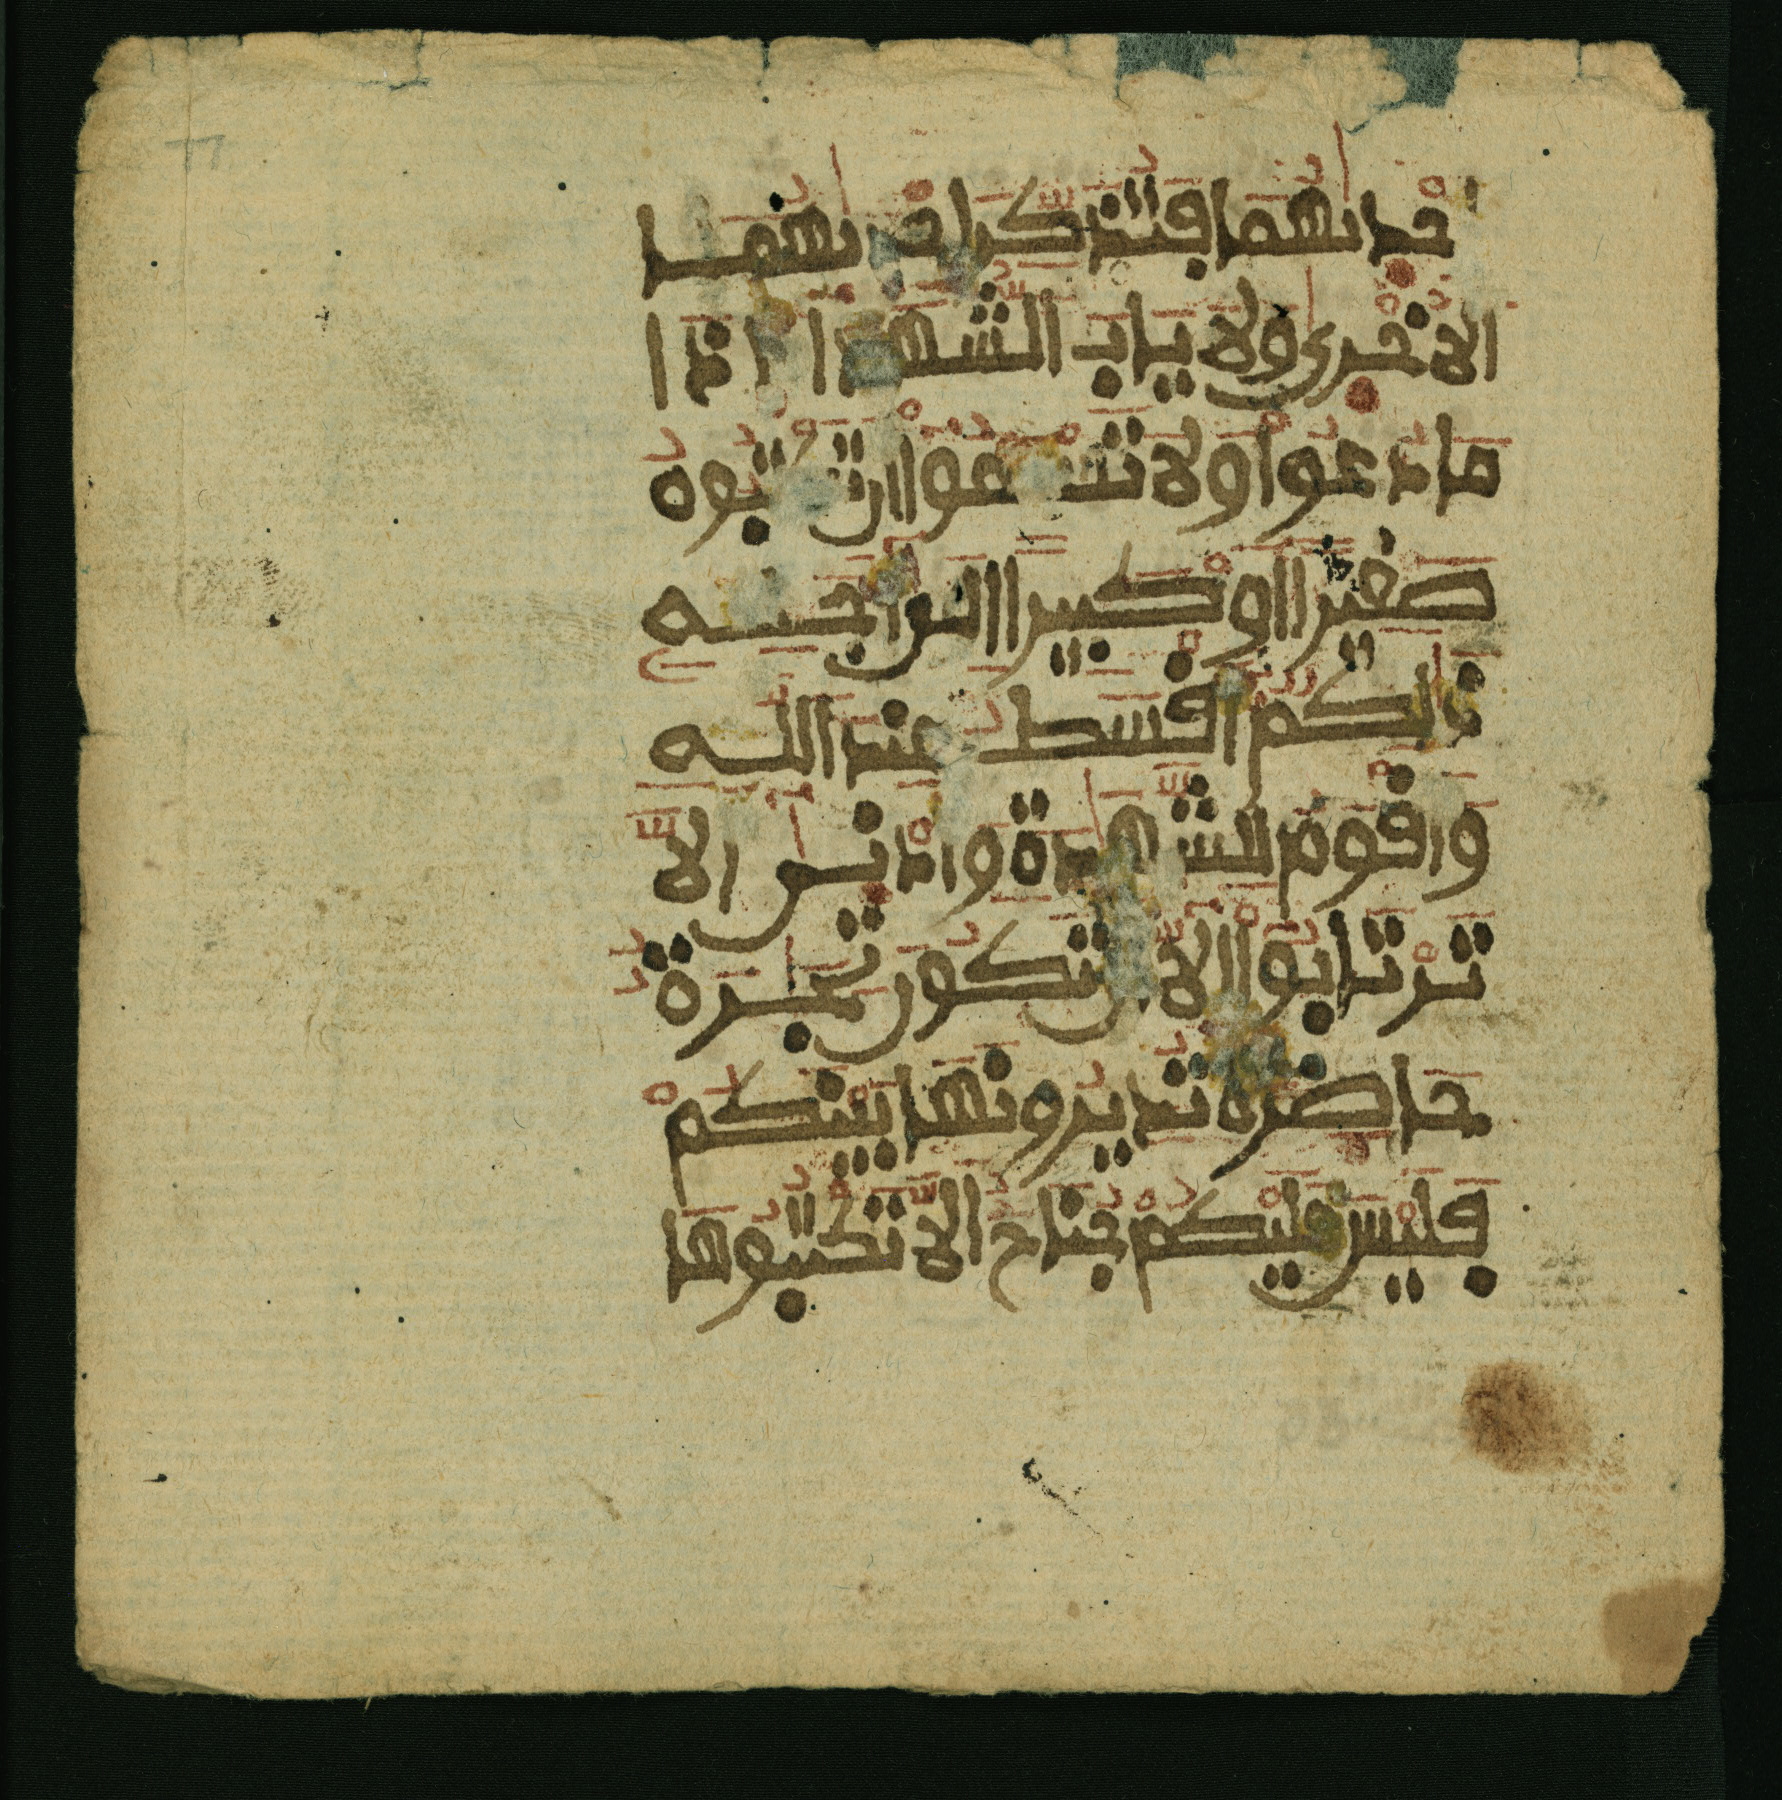 حدىهما فتذكر احدىهما
الاخرى ولا ياب الشهدا اذا
ما دعوا ولا تسـٔموا ان تكتبوه
صغيرا او كبيرا الى اجله
ذلكم اقسط عند الله
واقوم للشهدة وادنى الا
ترتابوا الا ان تكون تجرة
حاضرة تديرونها بينكم
فليس عليكم جناح الا تكتبوها